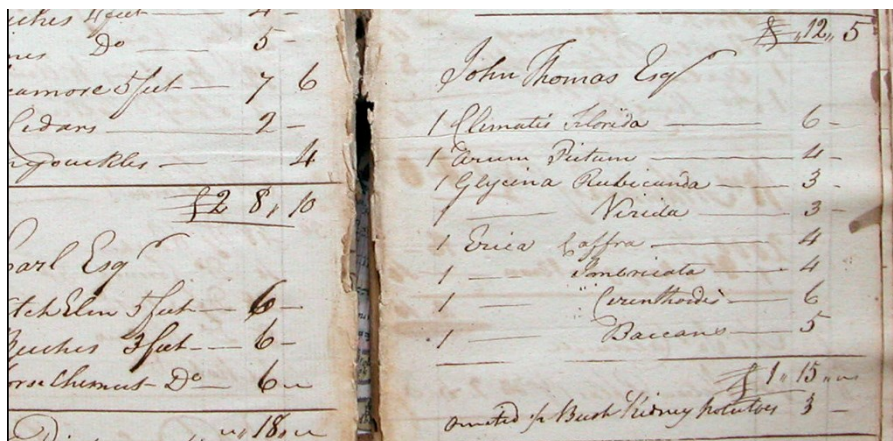 4 feet — 4 —
Do — 5 —
camore 5 feet — 7 6
Cedars — 2 —
4
£2 8 „ 10
Earl Esqr
tch Elm 5 feet — 6 —
Beeches 3 feet — 6 —
orse Chesnut Do — 6 „
„ 18 „
£ „ 12 „ 5
John Thomas Esqr
1 Climatis Florida — 6 —
1 Arum Pictum — 4 —
1 Glycina Rubicunda — 3 —
1 — Virida — 3 —
1 Erica Caffra — 4
1 — Imbricata — 4
1 — Cerinthoidis — 6
1 — Baccans — 5
£ 1 „ 15 „
omited Bush Kidney potatoes 3 —